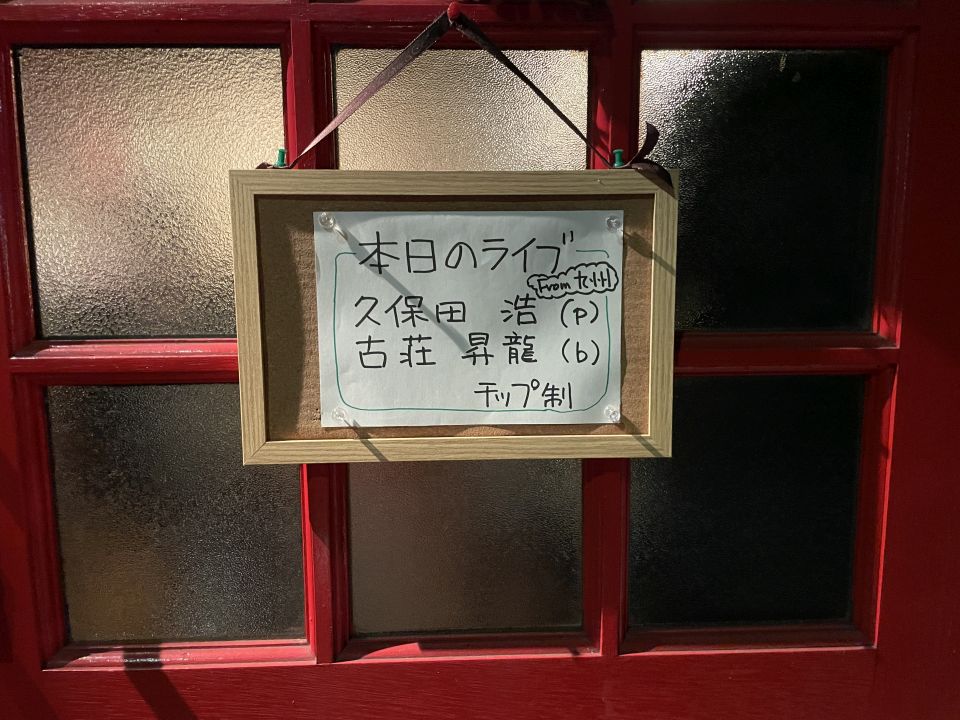 本日のライブ
From 九州
久保田 浩 (p)
古荘 昇龍 (b)
チップ制